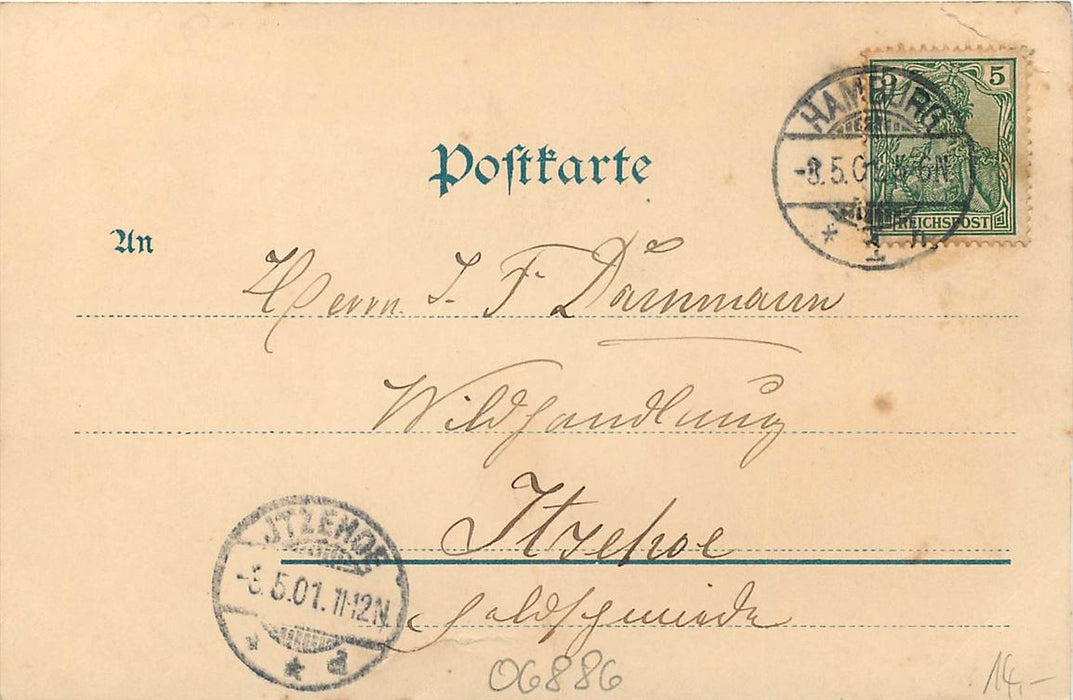 HAMBURG
5
-3.5.01. 5-6N.
* 1 n.
REICHSPOST
Postkarte
An
Herrn J. F. Dammann
Wildhandlung
Itzehoe
JTZEHOE
-3.5.01. 11-12N.
* * P
06886
14,-